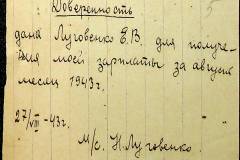 Доверенность
5
дана Луговенко Е.В. для получе-
ния моей зарплаты за август
месяц 1943г.
27/VIII -43г.
М/с. Н.Луговенко